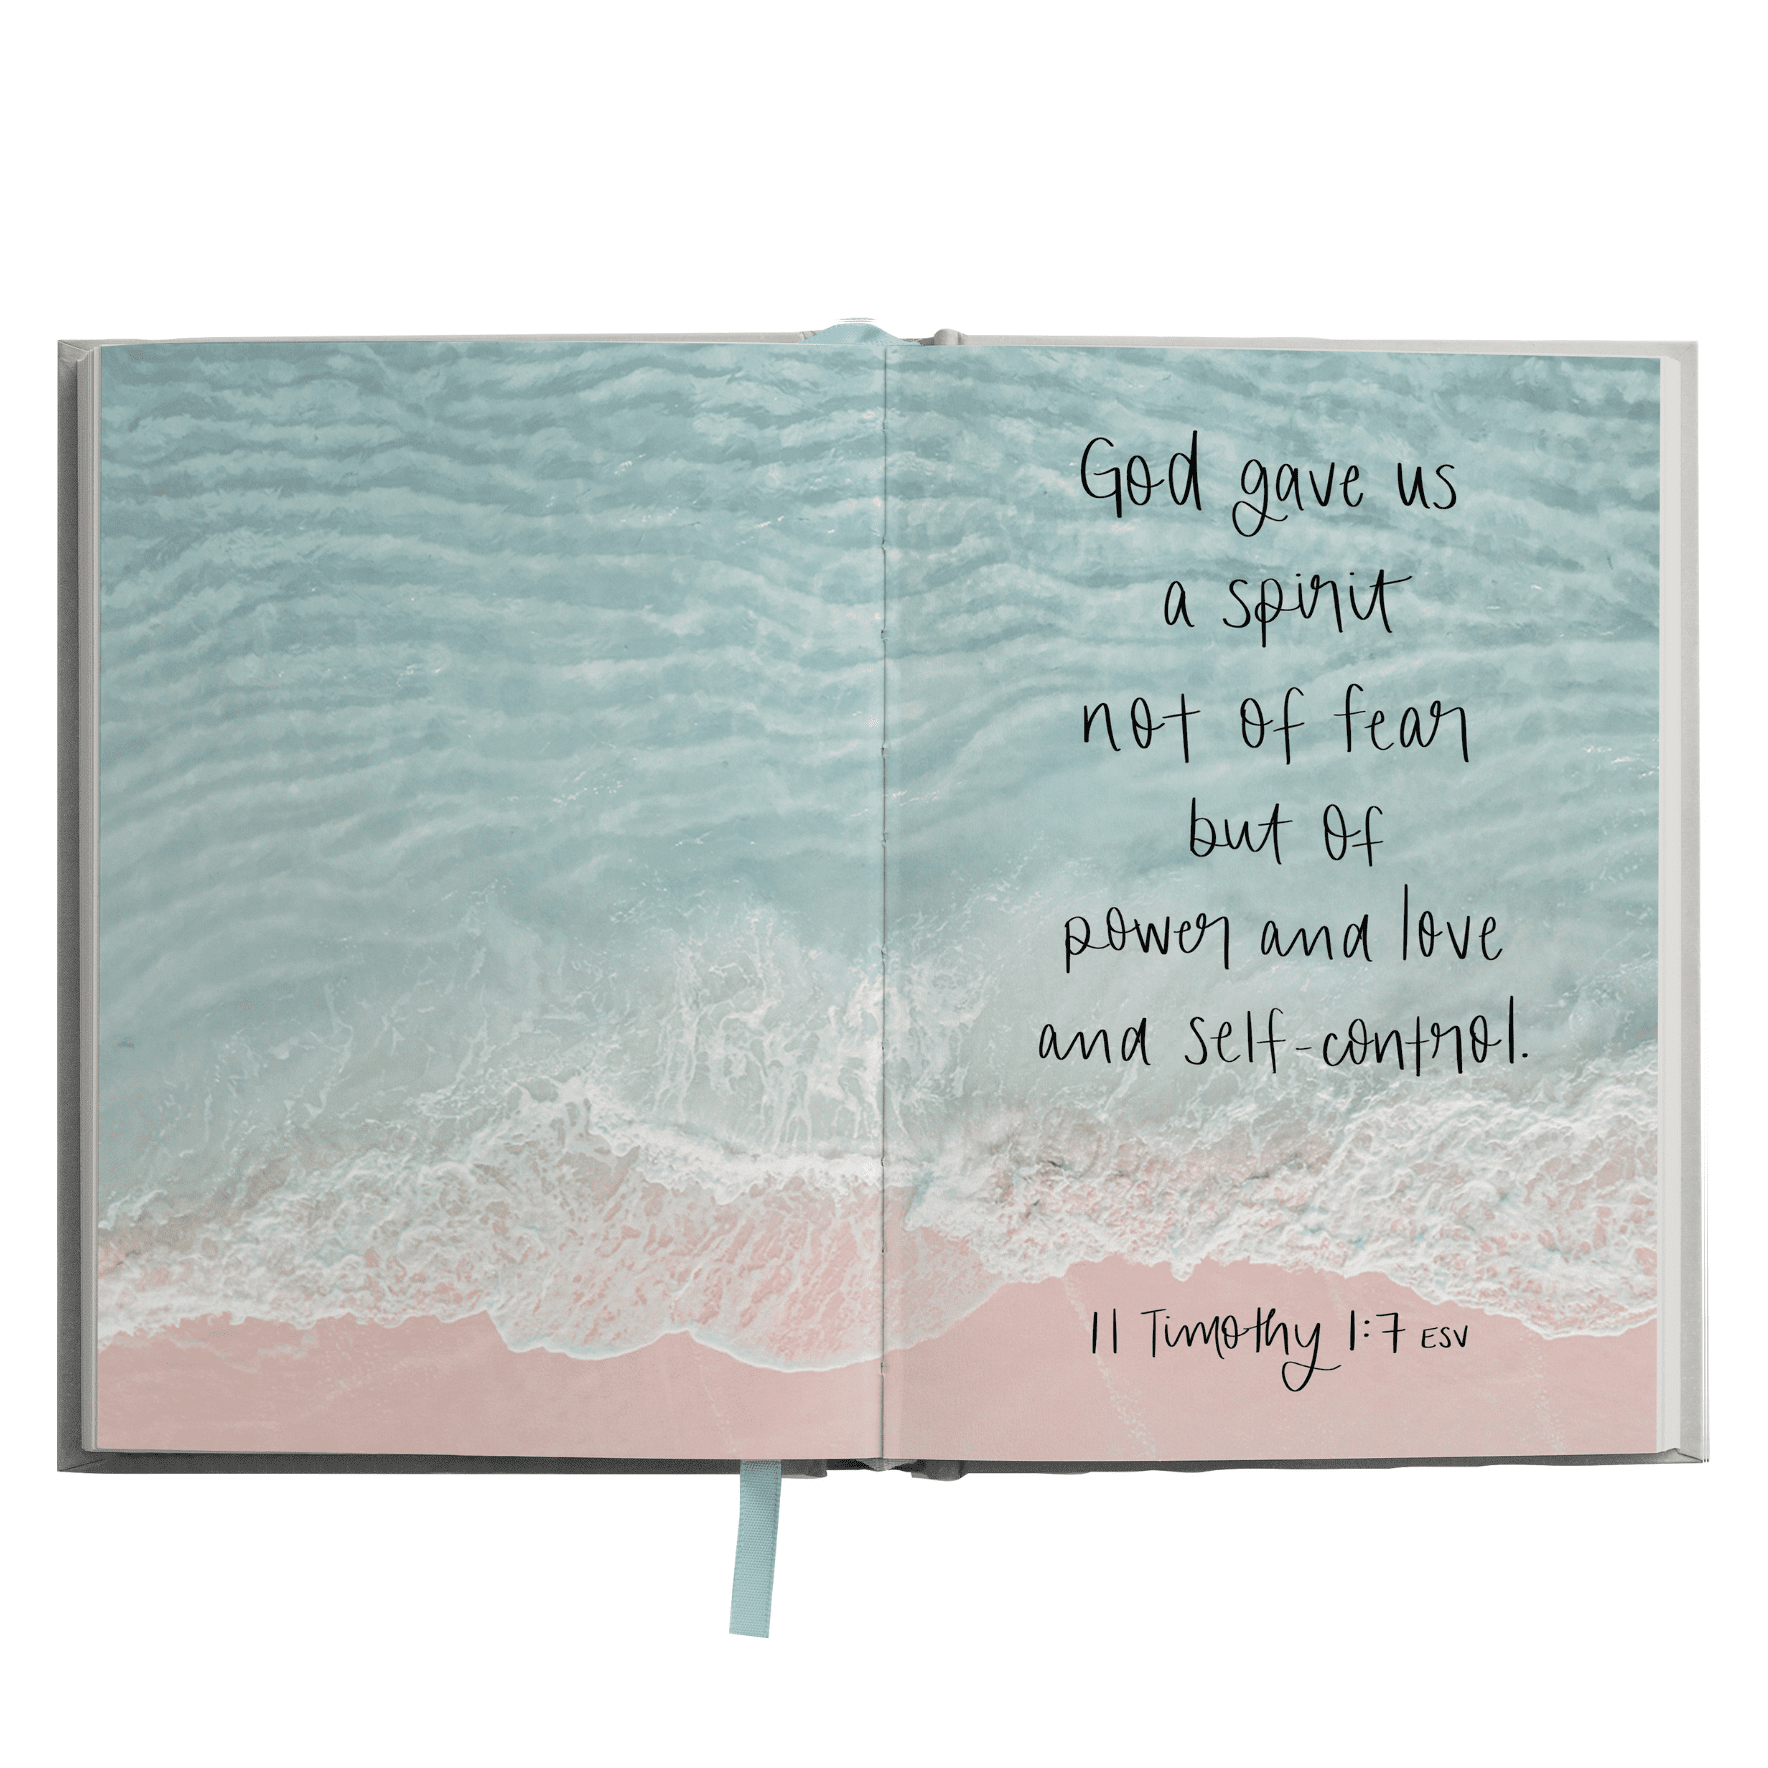 God gave us
a spirit
not of fear
but of
power and love
and self-control.
11 Timothy 1:7 ESV